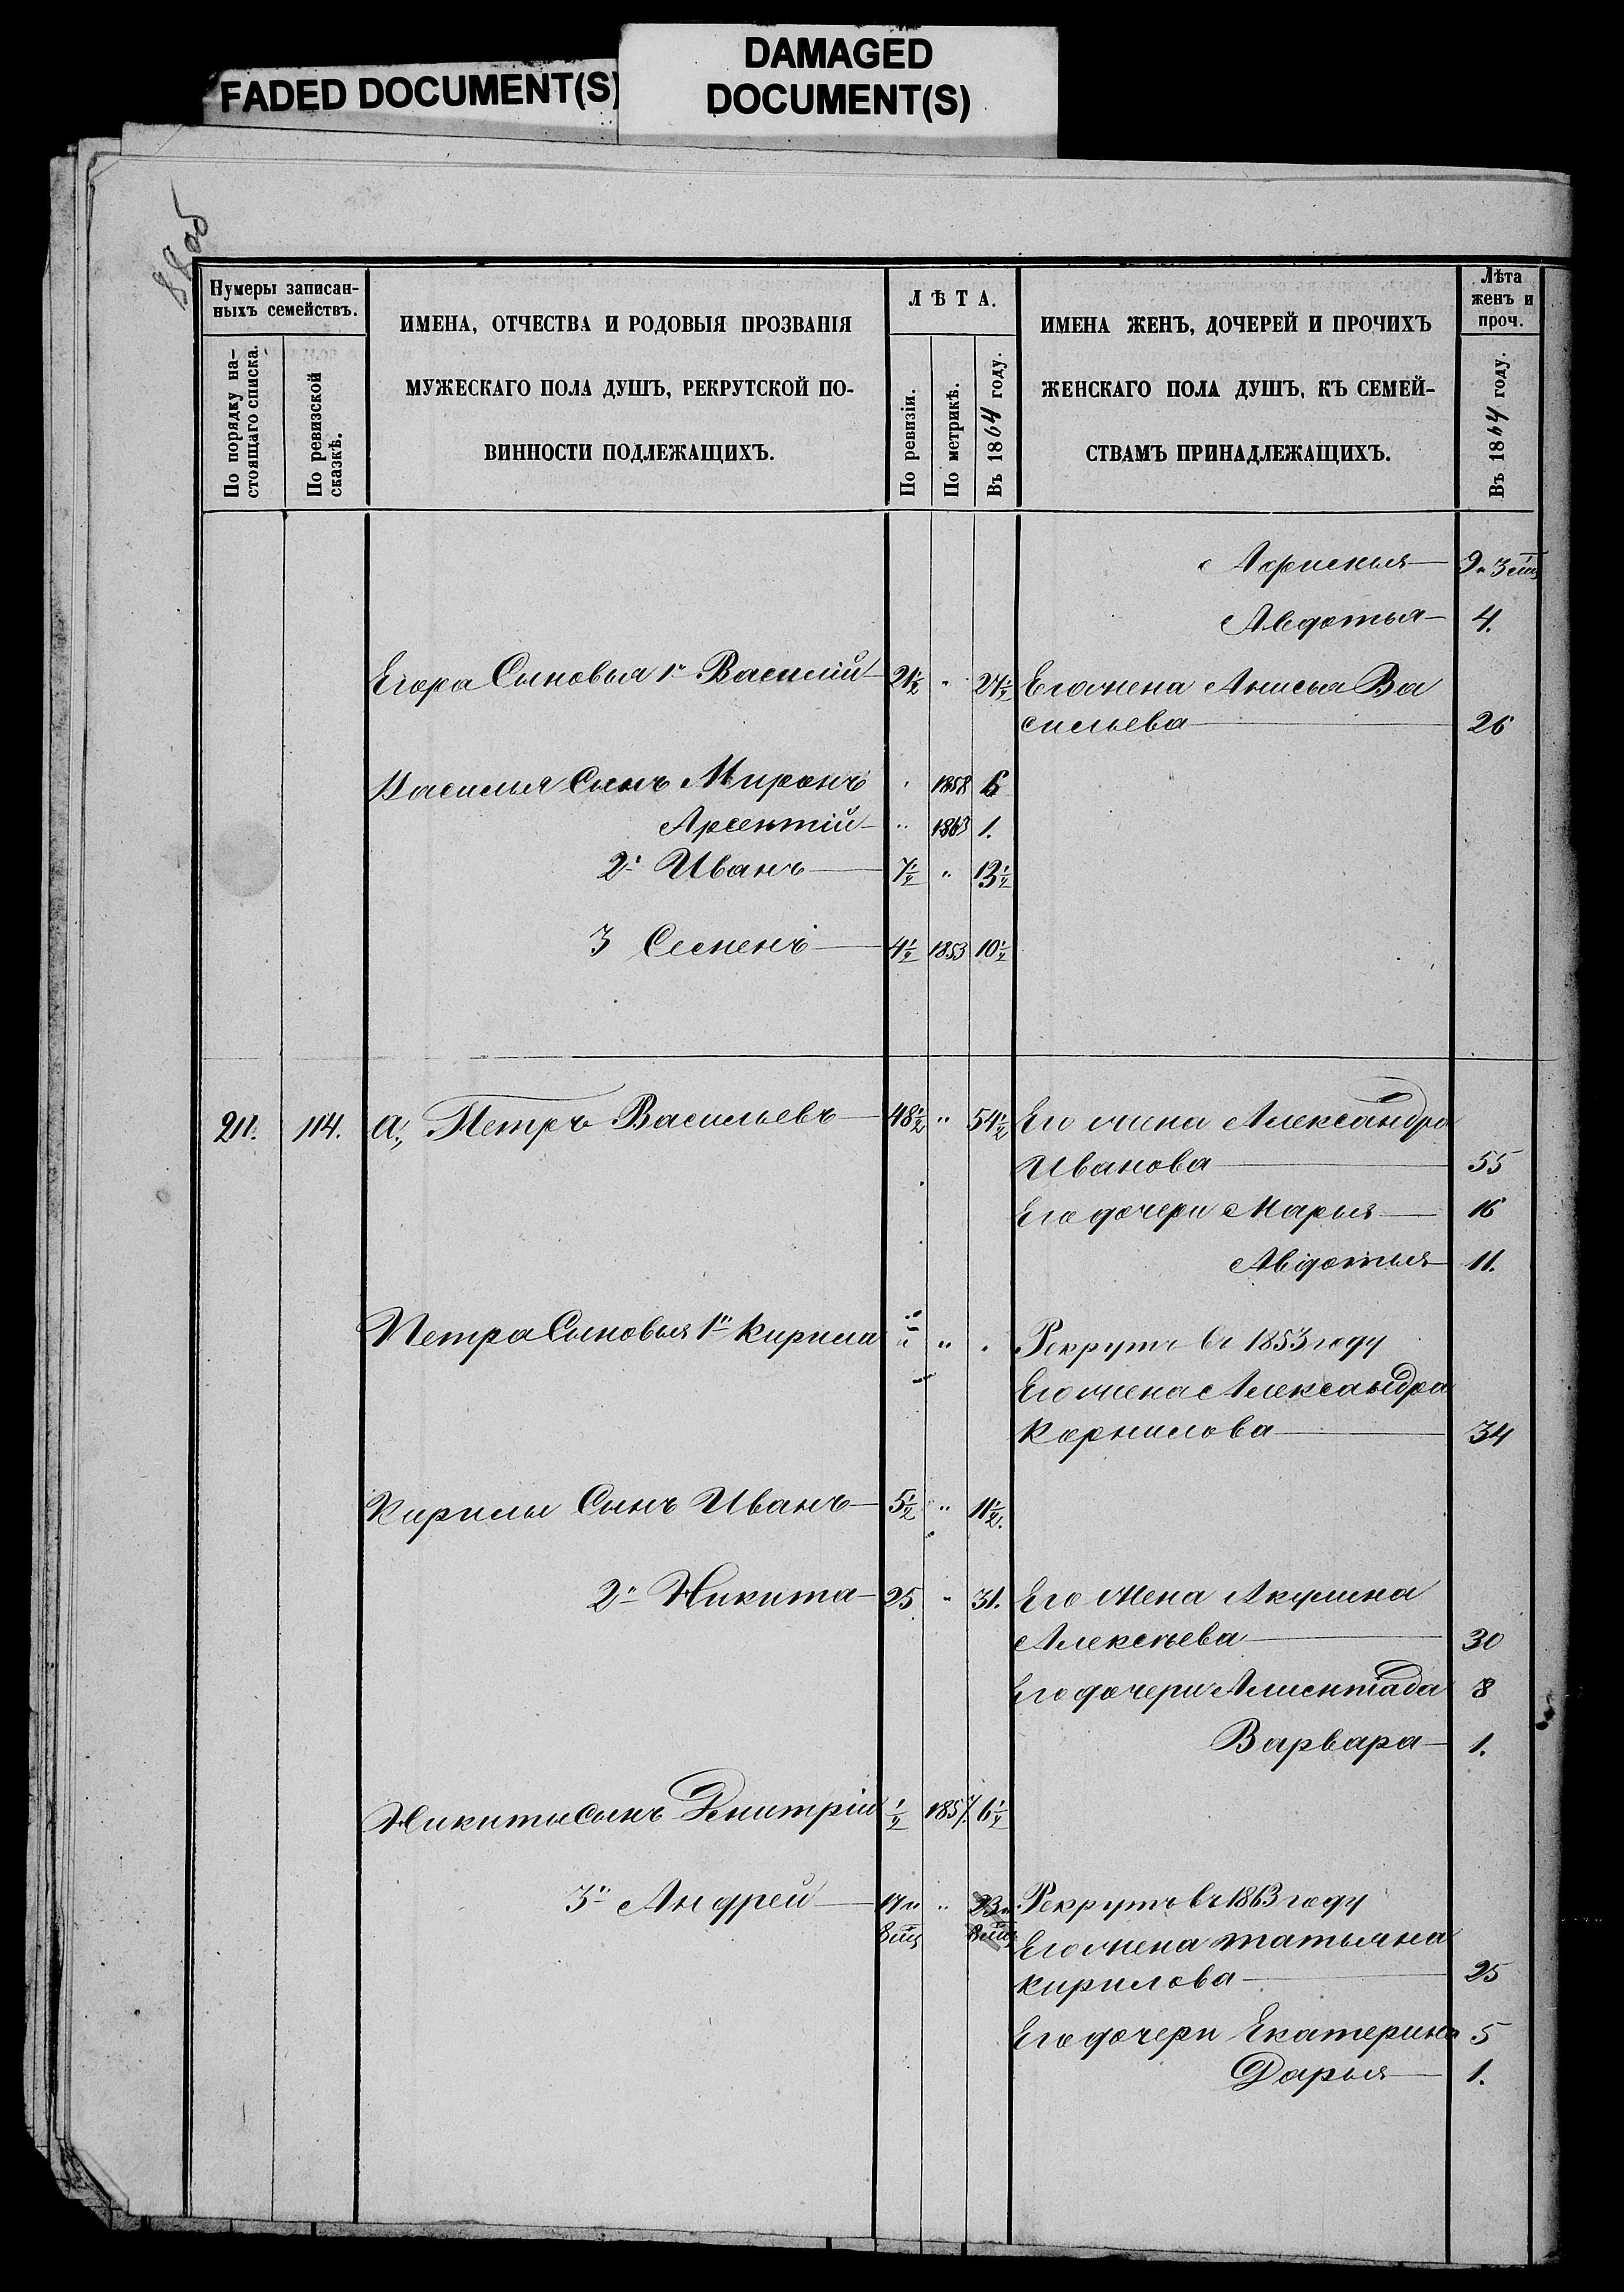 FADED DOCUMENT(S)
DAMAGED
DOCUMENT(S)
Нумеры записан-
ныхъ семействъ.
По порядку на-
стоящаго списка.
По ревизской
сказкѣ.
ИМЕНА, ОТЧЕСТВА И РОДОВЫЯ ПРОЗВАНІЯ
МУЖЕСКАГО ПОЛА ДУШЪ, РЕКРУТСКОЙ ПО-
ВИННОСТИ ПОДЛЕЖАЩИХЪ.
ЛѢТА.
По ревизіи.
По метрикѣ.
Въ 1864 году.
ИМЕНА ЖЕНЪ, ДОЧЕРЕЙ И ПРОЧИХЪ
ЖЕНСКАГО ПОЛА ДУШЪ, КЪ СЕМЕЙ-
СТВАМЪ ПРИНАДЛЕЖАЩИХЪ.
Лѣта
женъ и
проч.
Въ 1864 году.
Авдотья 4.
Егора Сыновья 1й Василій 21½ " 27½ Его жена Анисья Ва
сильева 26
Василья Сынъ Миронъ " 1858 6
Арсентій " 1863 1.
2й Иванъ 7½ " 13½
3 Семенъ 4½ 1853 10½
211. 114. а, Петръ Васильевъ 48½ " 54½ Его жена Александра
Иванова 55
Его дочери Марья 16
Авдотья 11.
Петра Сыновья 1й Кирила " " " Рекрутъ въ 1853 году
Его жена Александра
Корнилова 34
Кирилы Сынъ Иванъ 5½ " 11½.
2й Никита 25 " 31. Его жена Акулина
Алексѣева 30
Его дочери 8
Варвара 1.
Никиты сынъ Дмитрій ½ 1857. 6½
3й Андрей 17 и " 23 и Рекрутъ въ 1863 году
8 мц 8 мц Его жена татьяна
Кирилова 25
Его дочери Екатерина 5
Дарья 1.